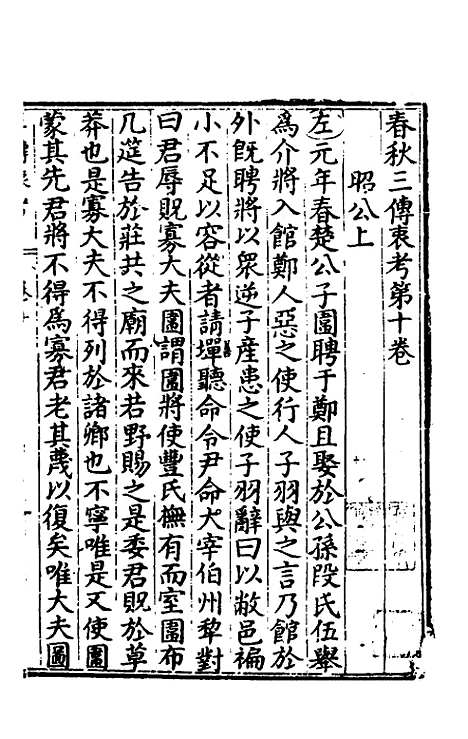 春秋三傳衷考第十卷
昭公上
左元年春楚公子圍聘于鄭且娶於公孫段氏伍舉
為介將入館鄭人惡之使行人子羽與之言乃館於
外既聘將以眾逆子產患之使子羽辭曰以敝邑褊
小不足以容從者請墠聽命令尹命大宰伯州犂對
曰君辱貺寡大夫圍謂圍將使豐氏撫有而室圍布
几筵告於莊共之廟而來若野賜之是委君貺於草
莽也是寡大夫不得列於諸卿也不寧唯是又使圍
蒙其先君將不得為寡君老其蔑以復矣唯大夫圖